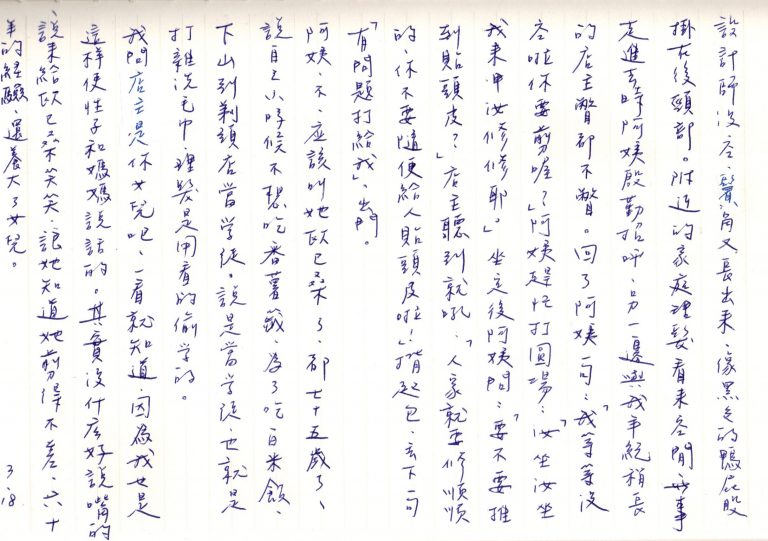 設計師沒空，鬢角又長出來，像黑色的鴨屁股
掛在後頸部。附近的家庭理髮看來空閒無事
走進去時阿姨殷勤招呼，另一邊與我年紀稍長
的店主瞥都不瞥。回了阿姨一句：「我等等沒
空啦你要剪喔？」阿姨趕忙打圓場：「汝坐汝坐
我來甲汝修修耶。」坐定後阿姨問：「要不要推
到貼頭皮？」店主聽到就吼：「人家就要修順順
的，你不要隨便給人貼頭皮啦！」揹起包，丟下一句
「有問題打給我」，出門。
阿姨，不，應該叫她歐巴桑了，都七十五歲了，
說自己小時候不想吃番薯籤，為了吃白米飯，
下山到剃頭店當學徒。說是當學徒，也就是
打雜洗毛巾，理髮是用看的偷學的。
我問店主是你女兒吧，一看就知道，因為我也是
這樣使性子和媽媽說話的。其實沒什麼好說嘴的
，說來給歐巴桑笑笑，讓她知道她剪得不差，六十
年的經驗，還養大了女兒。
3.18